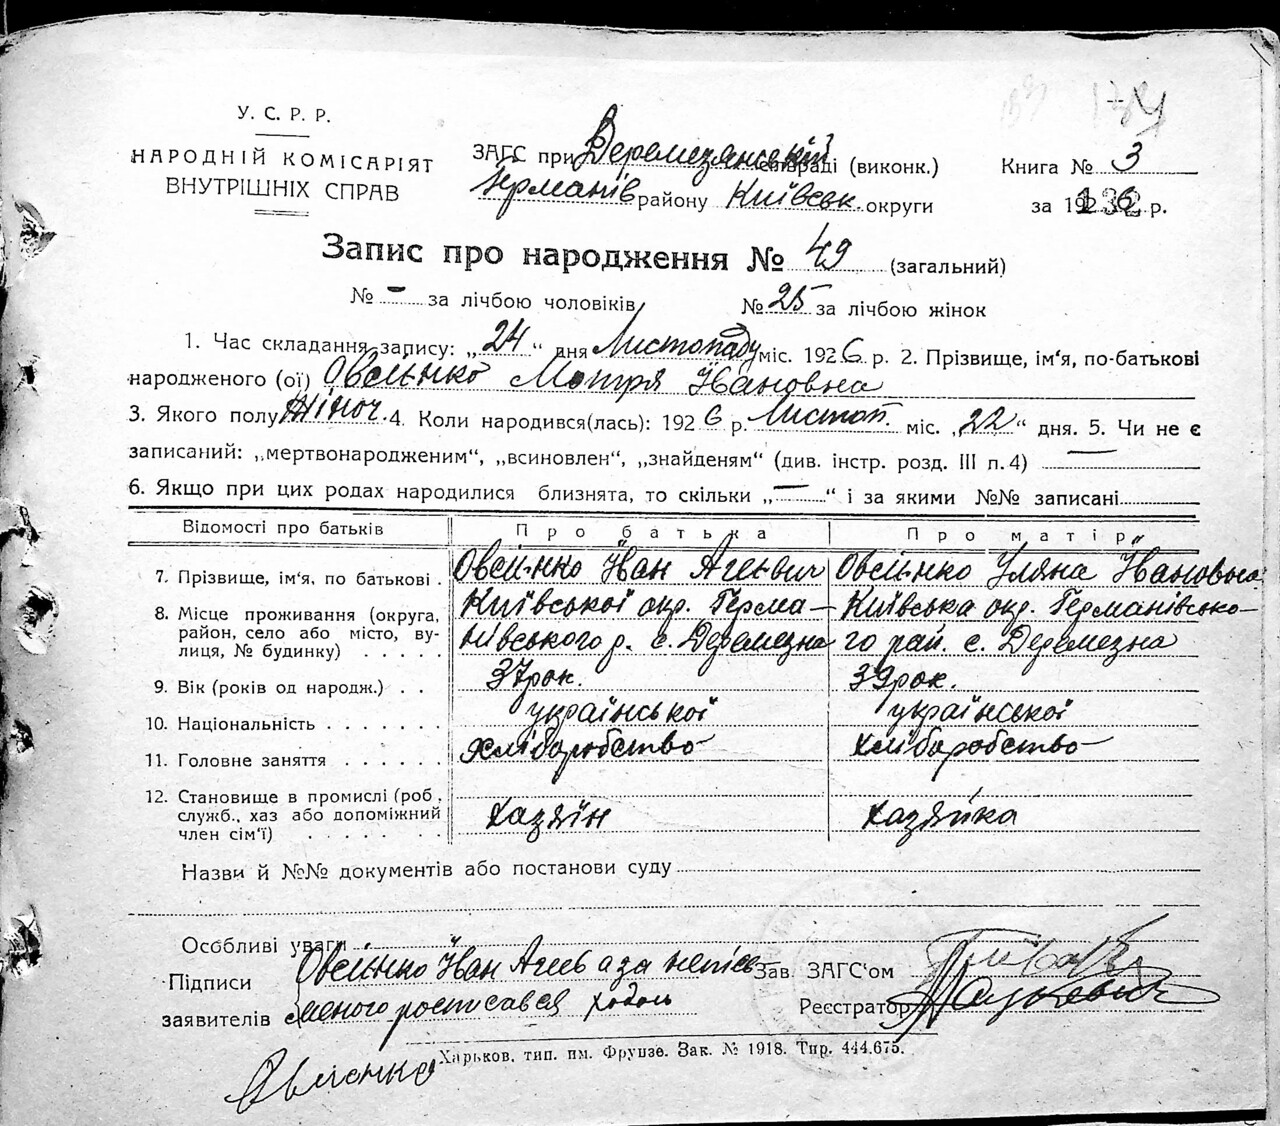 У. С. Р. Р.
НАРОДНІЙ КОМІСАРІЯТ
ВНУТРІШНІХ СПРАВ
ЗАГС при Деремезянській сельраді (виконк.)
Германів району Київськ. округи
Книга № 3
за 1926 р.
132
Запис про народження № 49 (загальний)
№ - за лічбою чоловіків № 25 за лічбою жінок
1. Час складання запису: „24“ дня Листопаду міс. 1926 р. 2. Прізвище, ім'я, по-батькові
народженого (ої) Овсіьнко Мотря Івановна
3. Якого полу Жіноч. 4. Коли народився(лась): 1926 р. Листоп. міс. „22“ дня. 5. Чи не є
записаний: „мертвонародженим“, „всиновлен“, „знайденям“ (див. інстр. розд. III п. 4) —
6. Якщо при цих родах народилися близнята, то скільки „—“ і за якими №№ записані
Відомості про батьків Про батька Про матір
7. Прізвище, ім'я, по батькові. Овсіьнко Іван Агеєвич Овсіьнко Уляна Івановна
8. Місце проживання (округа, Київської окр. Герма- Київська окр. Германівсько-
район, село або місто, ву- нівського р. с. Деремезна го рай. с. Деремезна
лиця, № будинку)
9. Вік (років од народж.) 37 рок. 39 рок.
10. Національність української української
11. Головне заняття хліборобство хліборобство
12. Становище в промислі (роб.,
служб., хаз або допоміжний Хазяїн Хазяйка
член сім'ї)
Назви й №№ документів або постанови суду
Особливі уваги
Підписи Овсіьнко Іван Агеїв а за непісь
заявителів меного росписався
Зав. ЗАГС'ом
Реєстратор
Харьков, тип. им. Фрунзе. Зак. № 1918. Тир. 444.675.